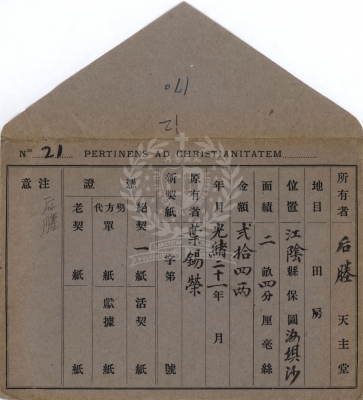 170
12
Nº 21 PERTINENS AD CHRISTIANITATEM
所有者 后塍 天主堂
地目 田房
位置 江陰縣保圖海垻沙
面積 二畝四分厘毫絲
金額 弐拾四両
年月 光緒二十一年 月
原有者 葉錫榮
新契紙 字第 號
憑證
絕契 一紙 活契 紙
勞方代單 紙 獻據 紙
老契 紙
注意
后塍